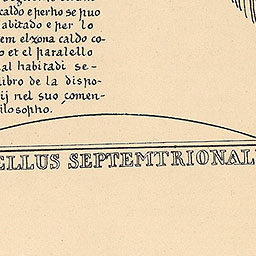 caldo e perho se puo
abitado e per lo
em el xona caldo co-
o et el paralello
al habitadi se-
libro de la dispo-
ij nel suo comen-
ilosopho.
ELLUS SEPTEMTRIONAL